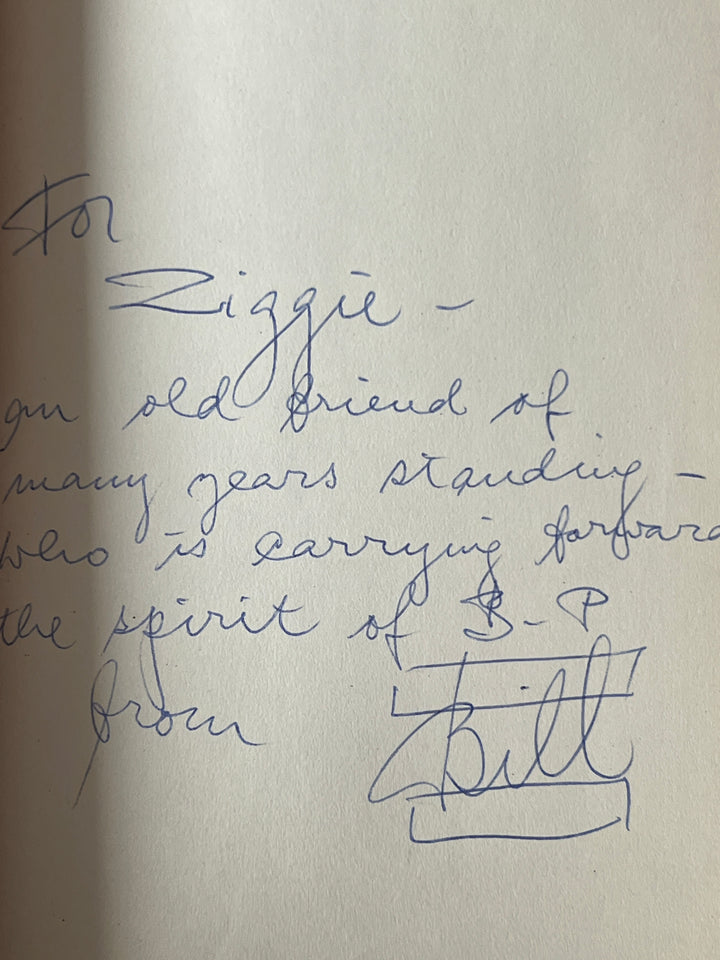 For
Ziggie -
an old friend of
many years standing -
who is carrying forward
the spirit of B-P
from Bill